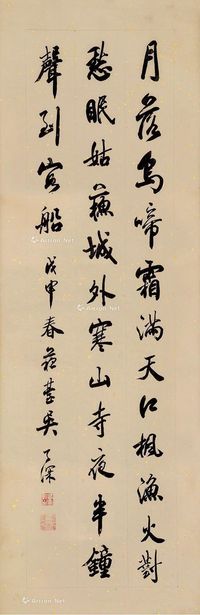 月落烏啼霜滿天江楓漁火對
愁眠姑蘇城外寒山寺夜半鐘
聲到客船 戊申春 蒞塘吳子深